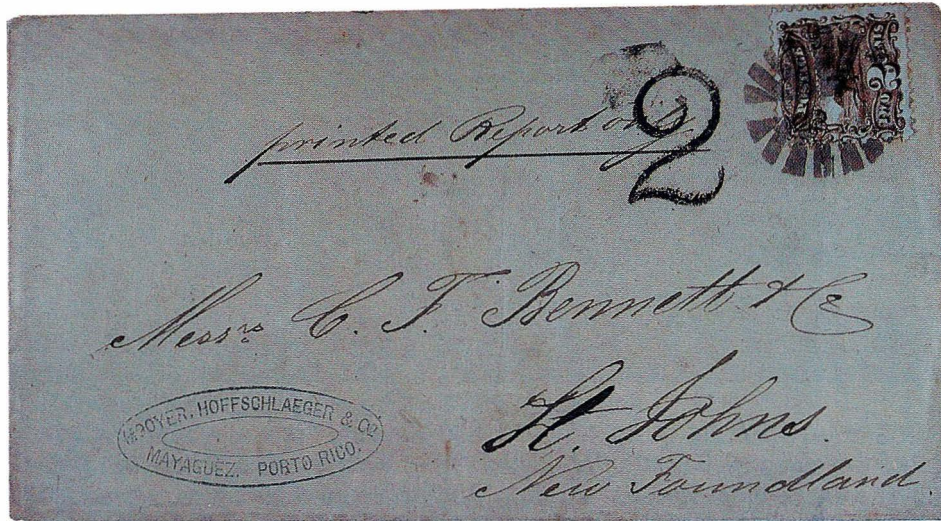 printed Report only
2
Messrs C. F. Bennett & Co
St. Johns.
New Foundland.
MOOYER, HOFFSCHLAEGER & Co.
MAYAGUEZ. PORTO RICO.